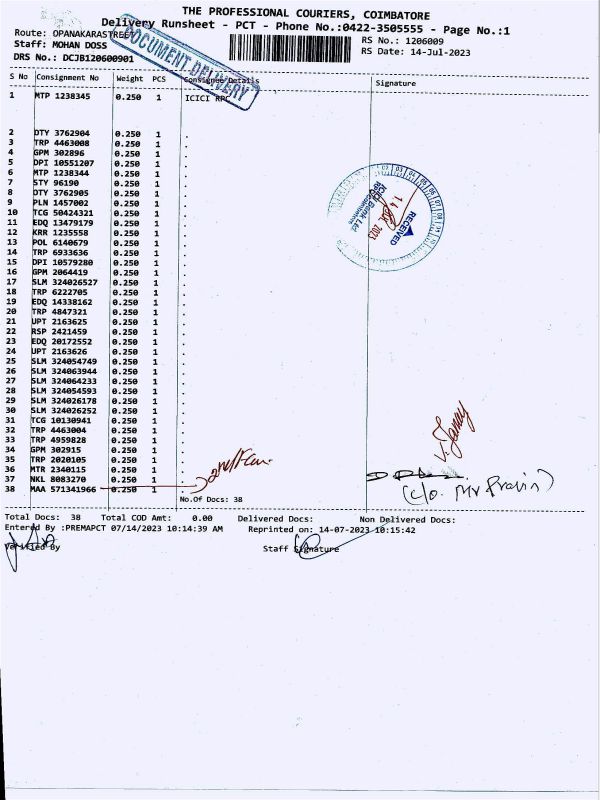 THE PROFESSIONAL COURIERS, COIMBATORE
Delivery Runsheet - PCT - Phone No.:0422-3505555 - Page No.:1
Route: OPANAKARASTREET
RS No.: 1206009
Staff: MOHAN DOSS
RS Date: 14-Jul-2023
DRS No.: DCJB120600901
DOCUMENT DELIVERY
S No Consignment No Weight PCS Consignee Details Signature
1 MTP 1238345 0.250 1 ICICI RPC
2 DTY 3762904 0.250 1 .
3 TRP 4463008 0.250 1 .
4 GPM 302896 0.250 1 .
5 DPI 10551207 0.250 1 .
6 MTP 1238344 0.250 1 .
7 STY 96190 0.250 1 .
8 DTY 3762905 0.250 1 .
9 PLN 1457002 0.250 1 .
10 TCG 50424321 0.250 1 .
11 EDQ 13479179 0.250 1 .
12 KRR 1235558 0.250 1 .
13 POL 6140679 0.250 1 .
14 TRP 6933636 0.250 1 .
15 DPI 10579280 0.250 1 .
16 GPM 2064419 0.250 1 .
17 SLM 324026527 0.250 1 .
18 TRP 6222705 0.250 1 .
19 EDQ 14338162 0.250 1 .
20 TRP 4847321 0.250 1 .
21 UPT 2163625 0.250 1 .
22 RSP 2421459 0.250 1 .
23 EDQ 20172552 0.250 1 .
24 UPT 2163626 0.250 1 .
25 SLM 324054749 0.250 1 .
26 SLM 324063944 0.250 1 .
27 SLM 324064233 0.250 1 .
28 SLM 324054593 0.250 1 .
29 SLM 324026178 0.250 1 .
30 SLM 324026252 0.250 1 .
31 TCG 10130941 0.250 1 .
32 TRP 4463004 0.250 1 .
33 TRP 4959828 0.250 1 .
34 GPM 302915 0.250 1 .
35 TRP 2020105 0.250 1 .
36 MTR 2340115 0.250 1 .
37 NKL 8083270 0.250 1 .
38 MAA 571341966 0.250 1 .
ICICI Bank Ltd
RECEIVED
(c/o. Mr Pravin)
No.Of Docs: 38
Total Docs: 38 Total COD Amt: 0.00 Delivered Docs: Non Delivered Docs:
Entered By :PREMAPCT 07/14/2023 10:14:39 AM Reprinted on: 14-07-2023 10:15:42
Verified By Staff Signature